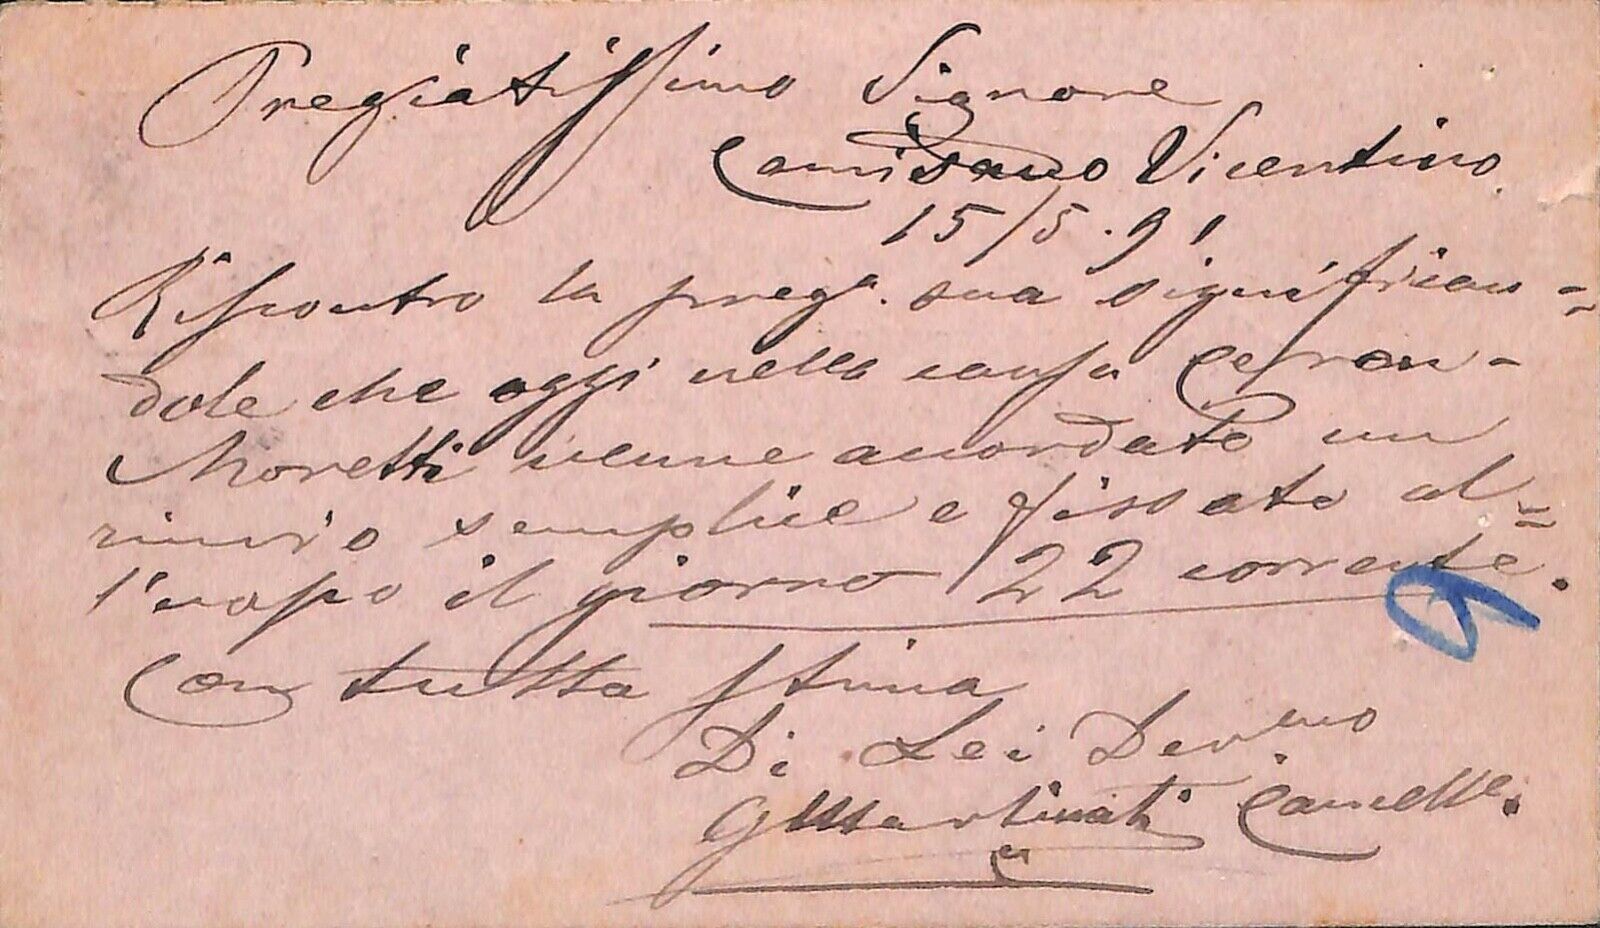 Pregiatissimo Signore
Camisano Vicentino
15/5.91
Riscontro la preg.a sua significan=
dole che oggi nella causa
Moretti venne accordato un
rinvio semplice e fissato al=
l'uopo il giorno 22 corrente.
Con tutta stima
Di Lei Dev.mo
GMartinati Cancell.e